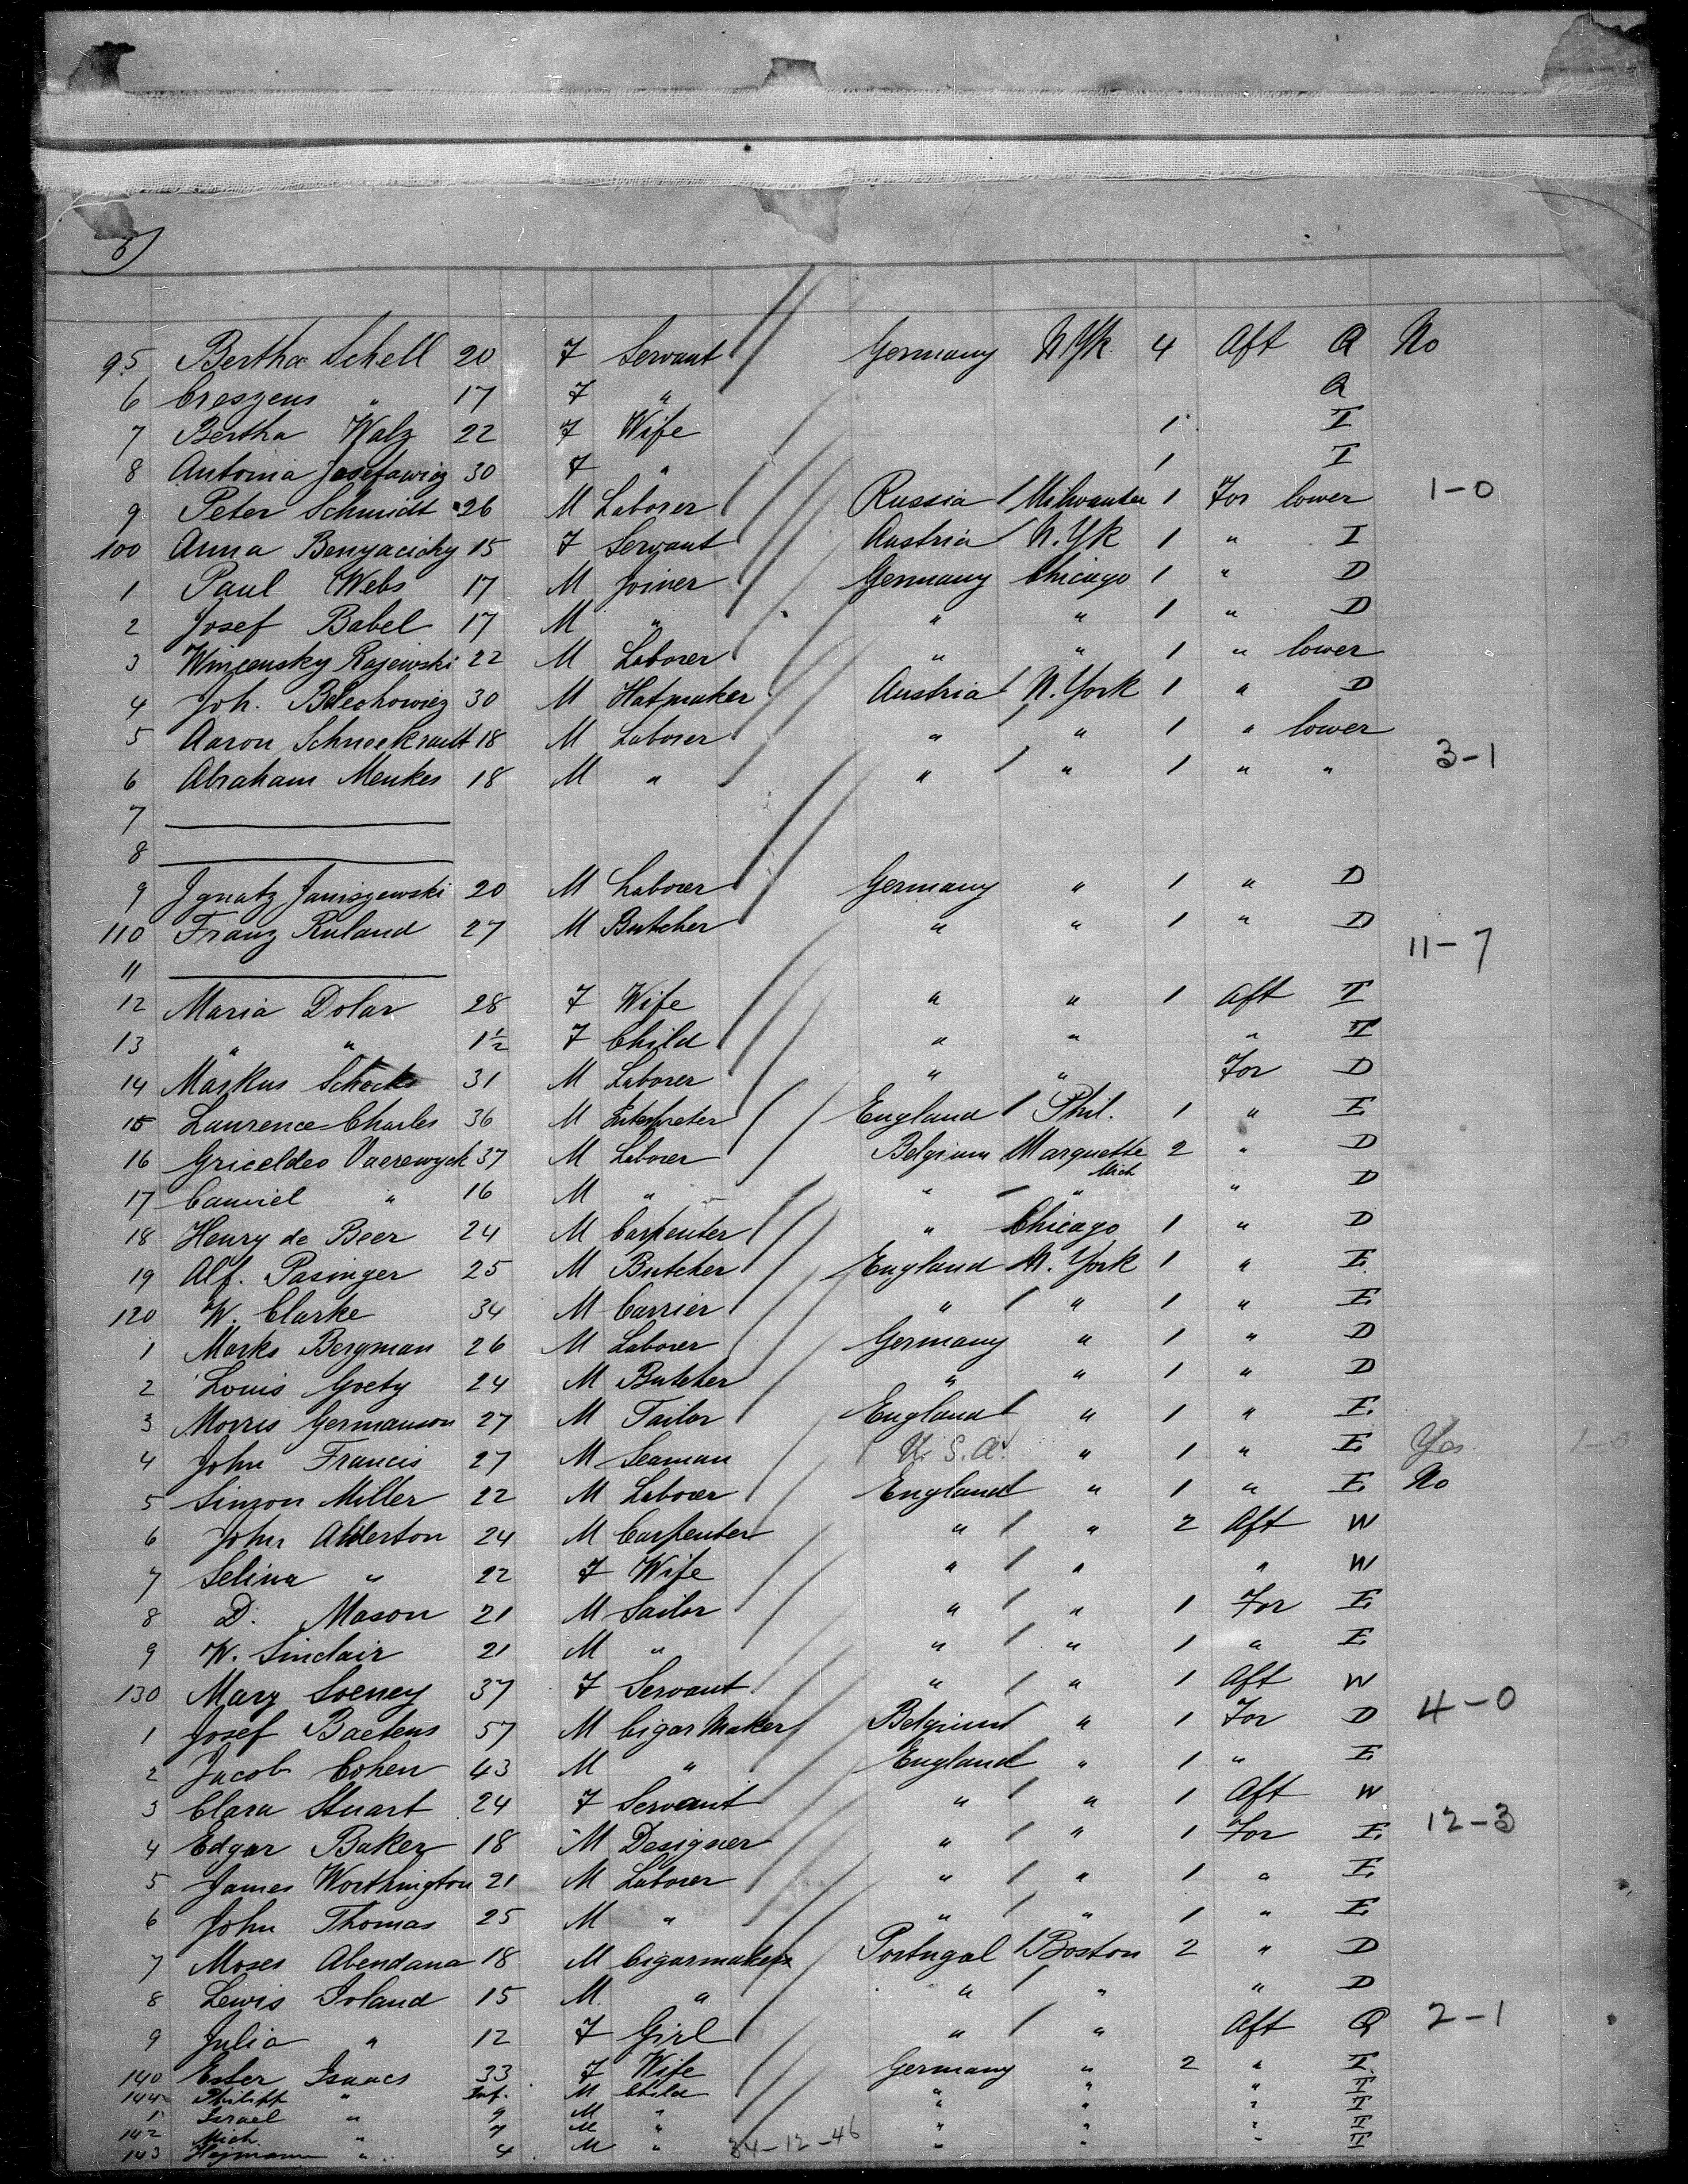 5)
95 Bertha Schell 20 F Servant Germany N Yk. 4 Aft Q No
6 Creszens " 17 F " Q
7 Bertha Walz 22 F Wife 1 T
8 Antonia Josefawicz 30 F " 1 T
9 Peter Schmidt 26 M Laborer Russia Milwaukee 1 For lower 1-0
100 Anna Benyacichy 15 F Servant Austria N. Yk 1 " I
1 Paul Webs 17 M Joiner Germany Chicago 1 " D
2 Josef Babel 17 M " " " 1 " D
3 Winzensky Rajewski 22 M Laborer " " 1 " lower
4 Joh. Blechowicz 30 M Hatmaker Austria N. York 1 " D
5 Aaron Schneekrautt 18 M Laborer " " 1 " lower
6 Abraham Menkes 18 M " " " 1 " " 3-1
7
8
9 Ignatz Janiszewski 20 M Laborer Germany " 1 " D
110 Franz Ruland 27 M Butcher " " 1 " D
11 11-7
12 Maria Dolar 28 F Wife " " 1 Aft T
13 " " 1½ F Child " " " T
14 Markus Schocks 31 M Laborer " " For D
15 Laurence Charles 36 M Interpreter England Phil. 1 " E
16 Griceldeo Vaerewyck 37 M Laborer Belgium Marquette Mich 2 " D
17 Camiel " 16 M " " " " D
18 Henry de Beer 24 M Carpenter " Chicago 1 " D
19 Alf. Pasinger 25 M Butcher England N. York 1 " E
120 W. Clarke 34 M Carrier " " 1 " E
1 Marks Bergman 26 M Laborer Germany " 1 " D
2 Louis Goety 24 M Butcher " " 1 " D
3 Morris Germanson 27 M Tailor England " 1 " E
4 John Francis 27 M Seaman U. S. A. " 1 " E Yes
5 Simon Miller 22 M Laborer England " 1 " E No
6 John Alderton 24 M Carpenter " " 2 Aft W
7 Selina " 22 F Wife " " " W
8 D. Mason 21 M Sailor " " 1 For E
9 W. Sinclair 21 M " " " 1 " E
130 Mary Soeney 37 F Servant " " 1 Aft W
1 Josef Baetens 57 M Cigar Maker Belgium " 1 For D 4-0
2 Jacob Cohen 43 M " England " 1 " E
3 Clara Stuart 24 F Servant " " 1 Aft W
4 Edgar Baker 18 M Designer " " 1 For E 12-3
5 James Worthington 21 M Laborer " " 1 " E
6 John Thomas 25 M " " " 1 " E
7 Moses Abendana 18 M Cigarmaker Portugal Boston 2 " D
8 Lewis Soland 15 M " " " " D
9 Julia " 12 F Girl " " Aft Q 2-1
140 Ester Isaacs 33 F Wife Germany " 2 " T
144 Philipp " Inf. M Child " " " T
1 Israel " 9 M " " " " T
142 Mich. " 7 M " " " " T
143 Hejmann " 4 M " 34-12-46 " " " T